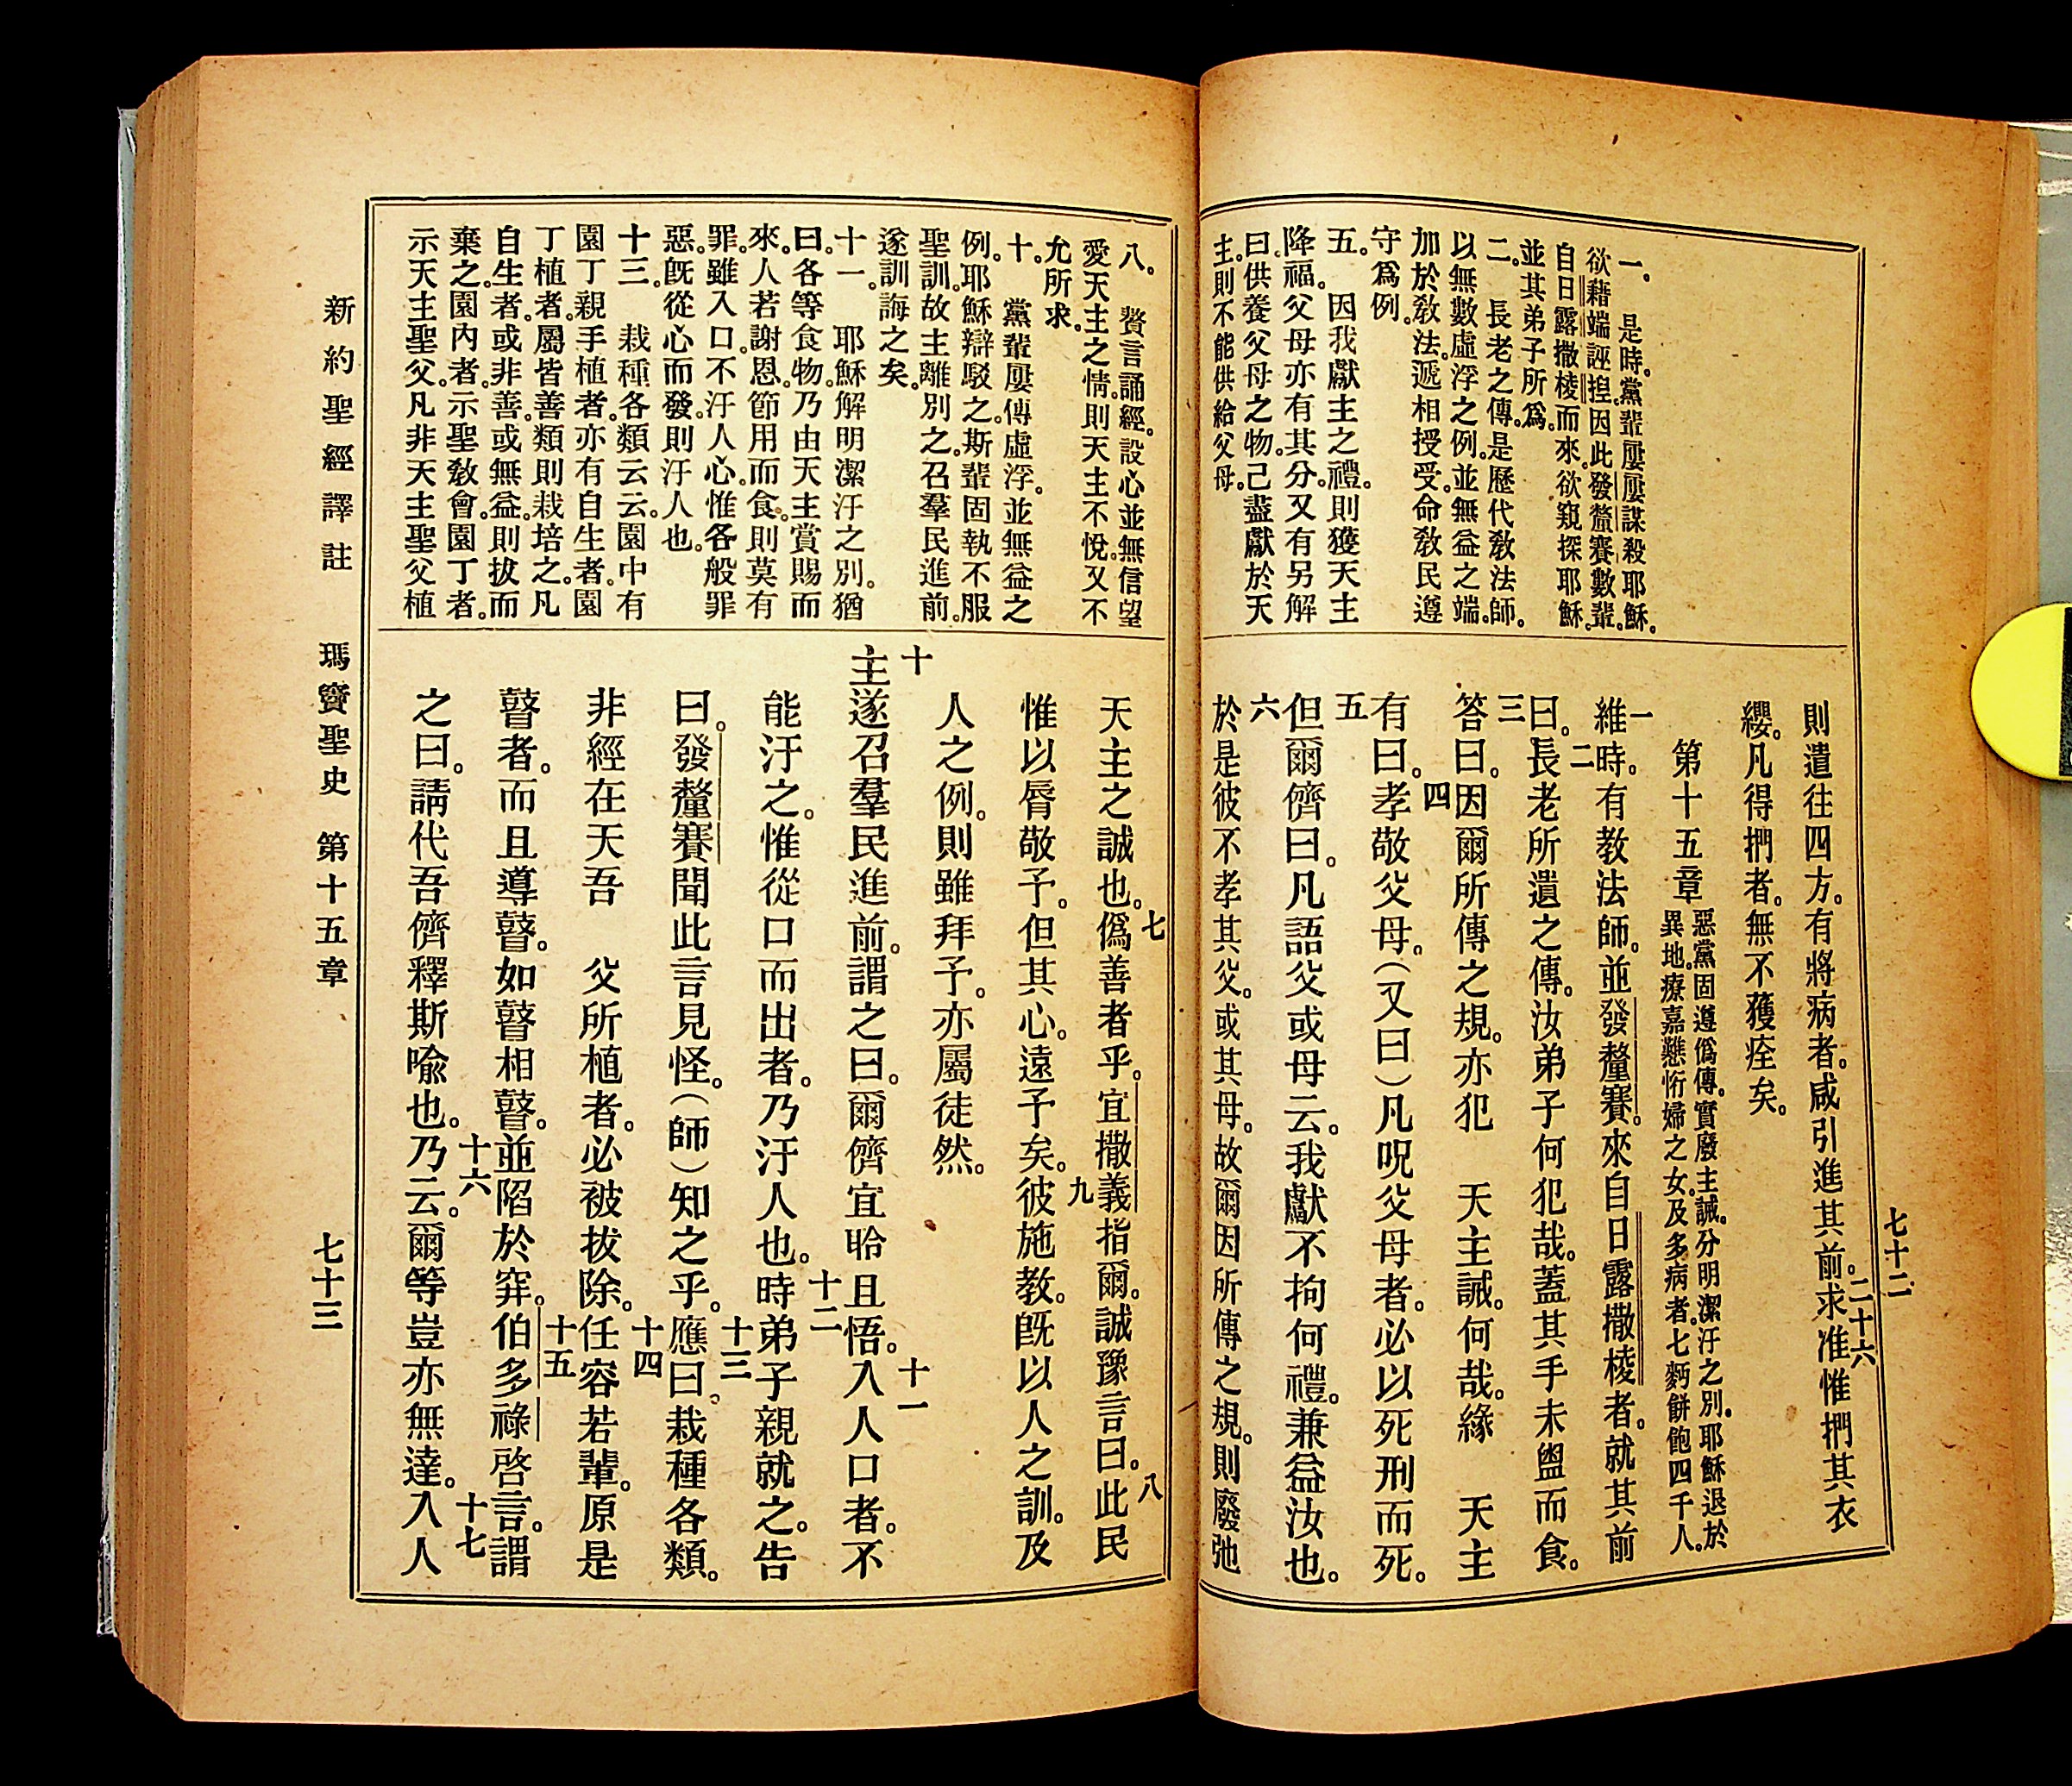 七十二
一。 是時。黨輩屢屢謀殺耶穌。
欲藉端誣揑。因此發釐賽數輩。
自日露撒棱而來。欲窺探耶穌。
並其弟子所爲。
二。 長老之傳。是歷代敎法師。
以無數虛浮之例。並無益之端。
加於敎法。遞相授受。命敎民遵
守爲例。
五。 因我獻主之禮。則獲天主
降福。父母亦有其分。又有另解
曰。供養父母之物。己盡獻於天
主。則不能供給父母。
則遣往四方。有將病者。咸引進其前。二十六求准惟捫其衣
纓。凡得捫者。無不獲痊矣。
第十五章 惡黨固遵僞傳。實廢主誡。分明潔汙之別。耶穌退於
異地。療嘉戁惱婦之女。及多病者。七麪餅飽四千人。
一維時。有教法師。並發釐賽。來自日露撒棱者。就其前
曰。二長老所遺之傳。汝弟子何犯哉。蓋其手未盥而食。
三答曰。因爾所傳之規。亦犯 天主誡。何哉。緣 天主
有曰。四孝敬父母。(又曰)凡呪父母者。必以死刑而死。
五但爾儕曰。凡語父或母云。我獻不拘何禮。兼益汝也。
六於是彼不孝其父。或其母。故爾因所傳之規。則廢弛
八。 贅言誦經。設心並無信望
愛天主之情。則天主不悅。又不
允所求。
十。 黨輩屢傳虛浮。並無益之
例。耶穌辯駁之。斯輩固執不服
聖訓。故主離別之。召羣民進前。
遂訓誨之矣。
十一。 耶穌解明潔汙之別。猶
曰。各等食物。乃由天主賞賜而
來。人若謝恩。節用而食。則莫有
罪。雖入口。不汙人心。惟各般罪
惡。旣從心而發。則汙人也。
十三。 栽種各類云云。園中有
園丁親手植者。亦有自生者。園
丁植者。屬皆善類。則栽培之。凡
自生者。或非善。或無益。則拔而
棄之。園內者。示聖敎會。園丁者。
示天主聖父。凡非天主聖父植
天主之誠也。七僞善者乎。宜撒義指爾。誠豫言曰。八此民
惟以脣敬予。但其心。遠予矣。九彼施教。旣以人之訓。及
人之例。則雖拜予。亦屬徒然。
十主遂召羣民進前。謂之曰。爾儕宜聆且悟。十一入人口者。不
能汙之。惟從口而出者。乃汙人也。十二時弟子親就之。告
曰。發釐賽聞此言見怪。(師)知之乎。十三應曰。栽種各類。
非經在天吾 父所植者。必被拔除。十四任容若輩。原是
瞽者。而且導瞽。如瞽相瞽。並陷於穽。十五伯多祿啓言。謂
之曰。請代吾儕釋斯喩也。十六乃云。爾等豈亦無達。十七入人
新約聖經譯註 瑪竇聖史 第十五章 七十三